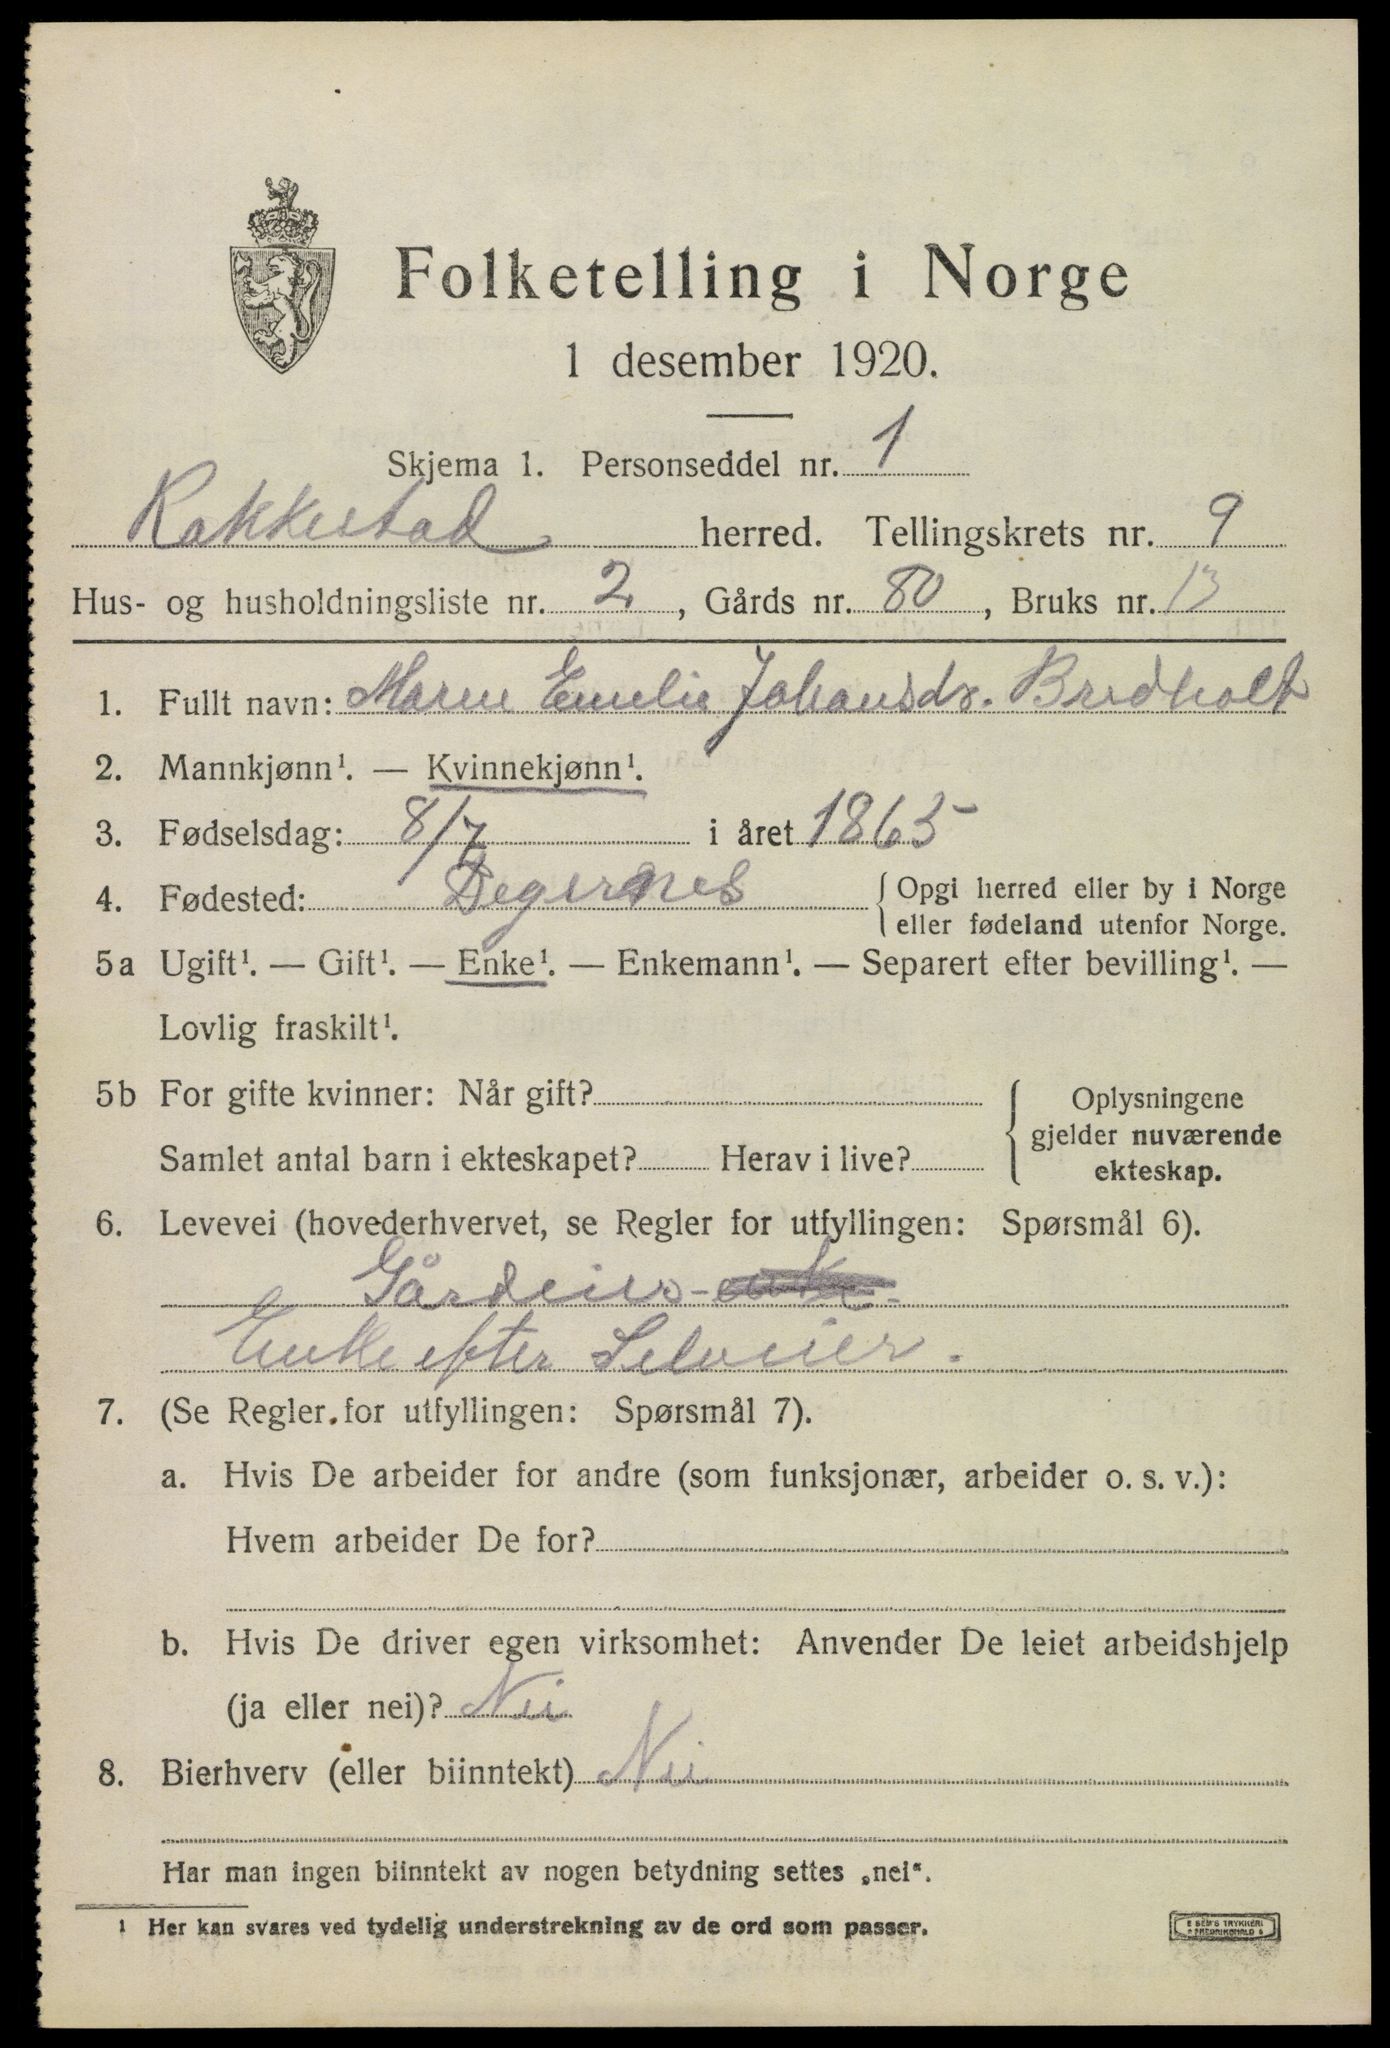 Folketelling i Norge
1 desember 1920.
Skjema 1. Personseddel nr. 1
Rakkestad herred. Tellingskrets nr. 9
Hus- og husholdningsliste nr. 2, Gårds nr. 80, Bruks nr. 13
1. Fullt navn: Maren Emelie Johansdr. Bredholt
2. Mannkjønn¹. — Kvinnekjønn¹.
3. Fødselsdag: 8/7 i året 1865
4. Fødested: Degernes { Opgi herred eller by i Norge
eller fødeland utenfor Norge.
5a Ugift¹. — Gift¹. — Enke¹. — Enkemann¹. — Separert efter bevilling¹. —
Lovlig fraskilt¹.
5b For gifte kvinner: Når gift? { Oplysningene
gjelder nuværende
Samlet antal barn i ekteskapet? Herav i live? ekteskap.
6. Levevei (hovederhvervet, se Regler for utfyllingen: Spørsmål 6).
Gårdeier-enke.
Enke efter Selveier.
7. (Se Regler for utfyllingen: Spørsmål 7).
a. Hvis De arbeider for andre (som funksjonær, arbeider o. s. v.):
Hvem arbeider De for?
b. Hvis De driver egen virksomhet: Anvender De leiet arbeidshjelp
(ja eller nei)? Nei
8. Bierhverv (eller biinntekt) Nei
Har man ingen biinntekt av nogen betydning settes „nei“.
1 Her kan svares ved tydelig understrekning av de ord som passer.
E SEM'S TRYKKERI
FREDRIKSHALD